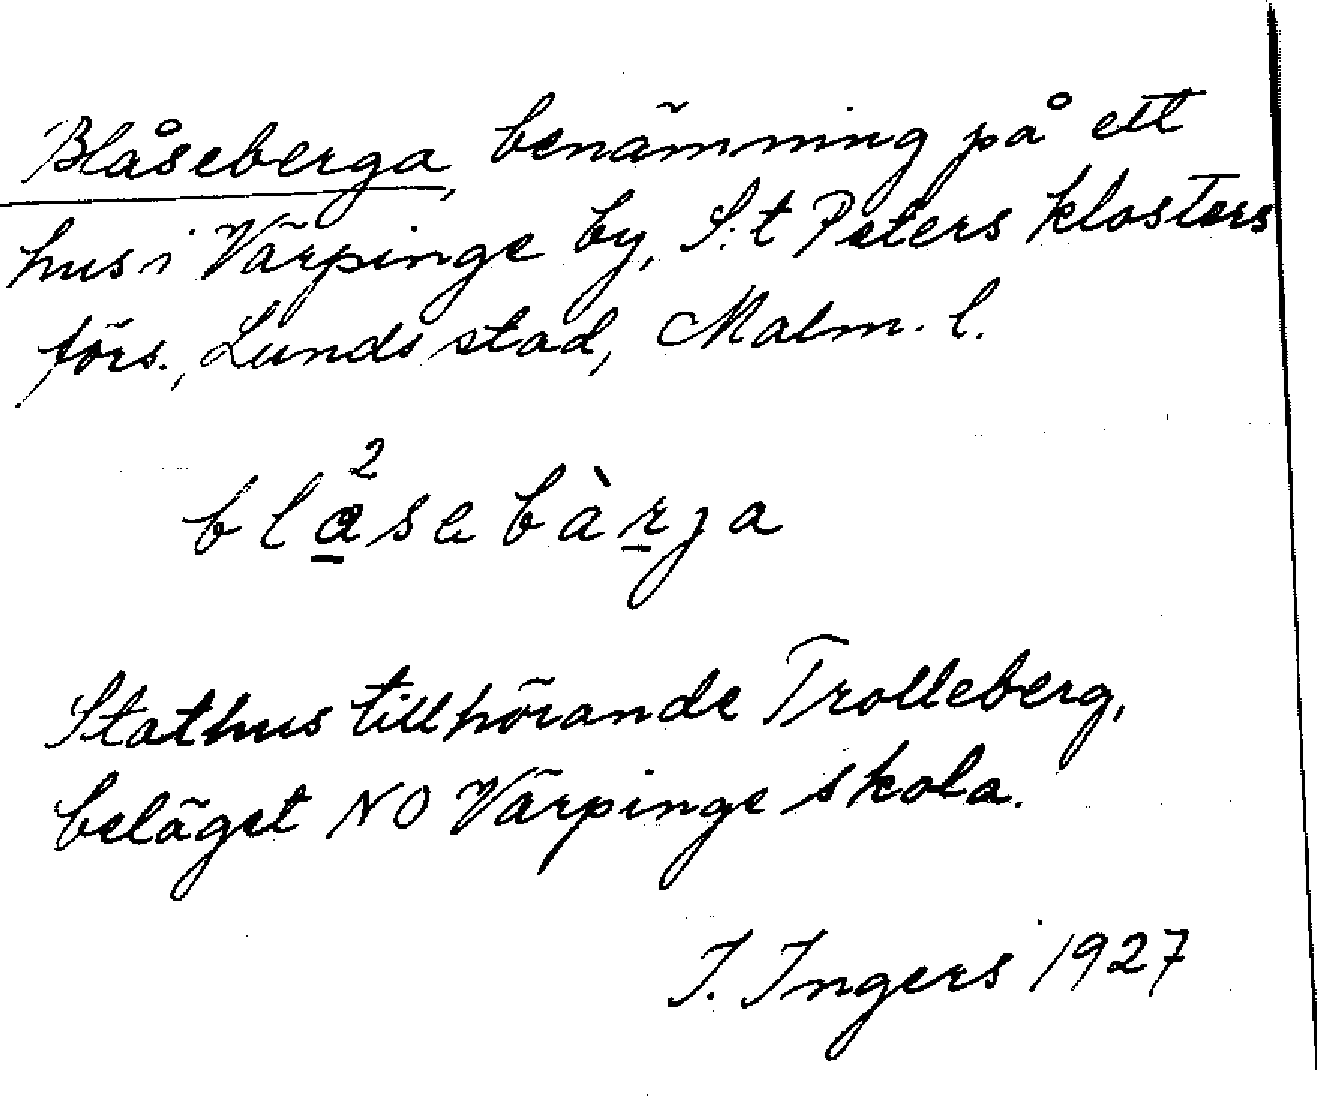 Blåseberga, benämning på ett
hus i Värpinge by, S:t Peters klosters
förs., Lunds stad, Malm. l.
2
blasebàrja
Stathus tillhörande Trolleberg,
beläget NO Värpinge skola.
I. Ingers 1927